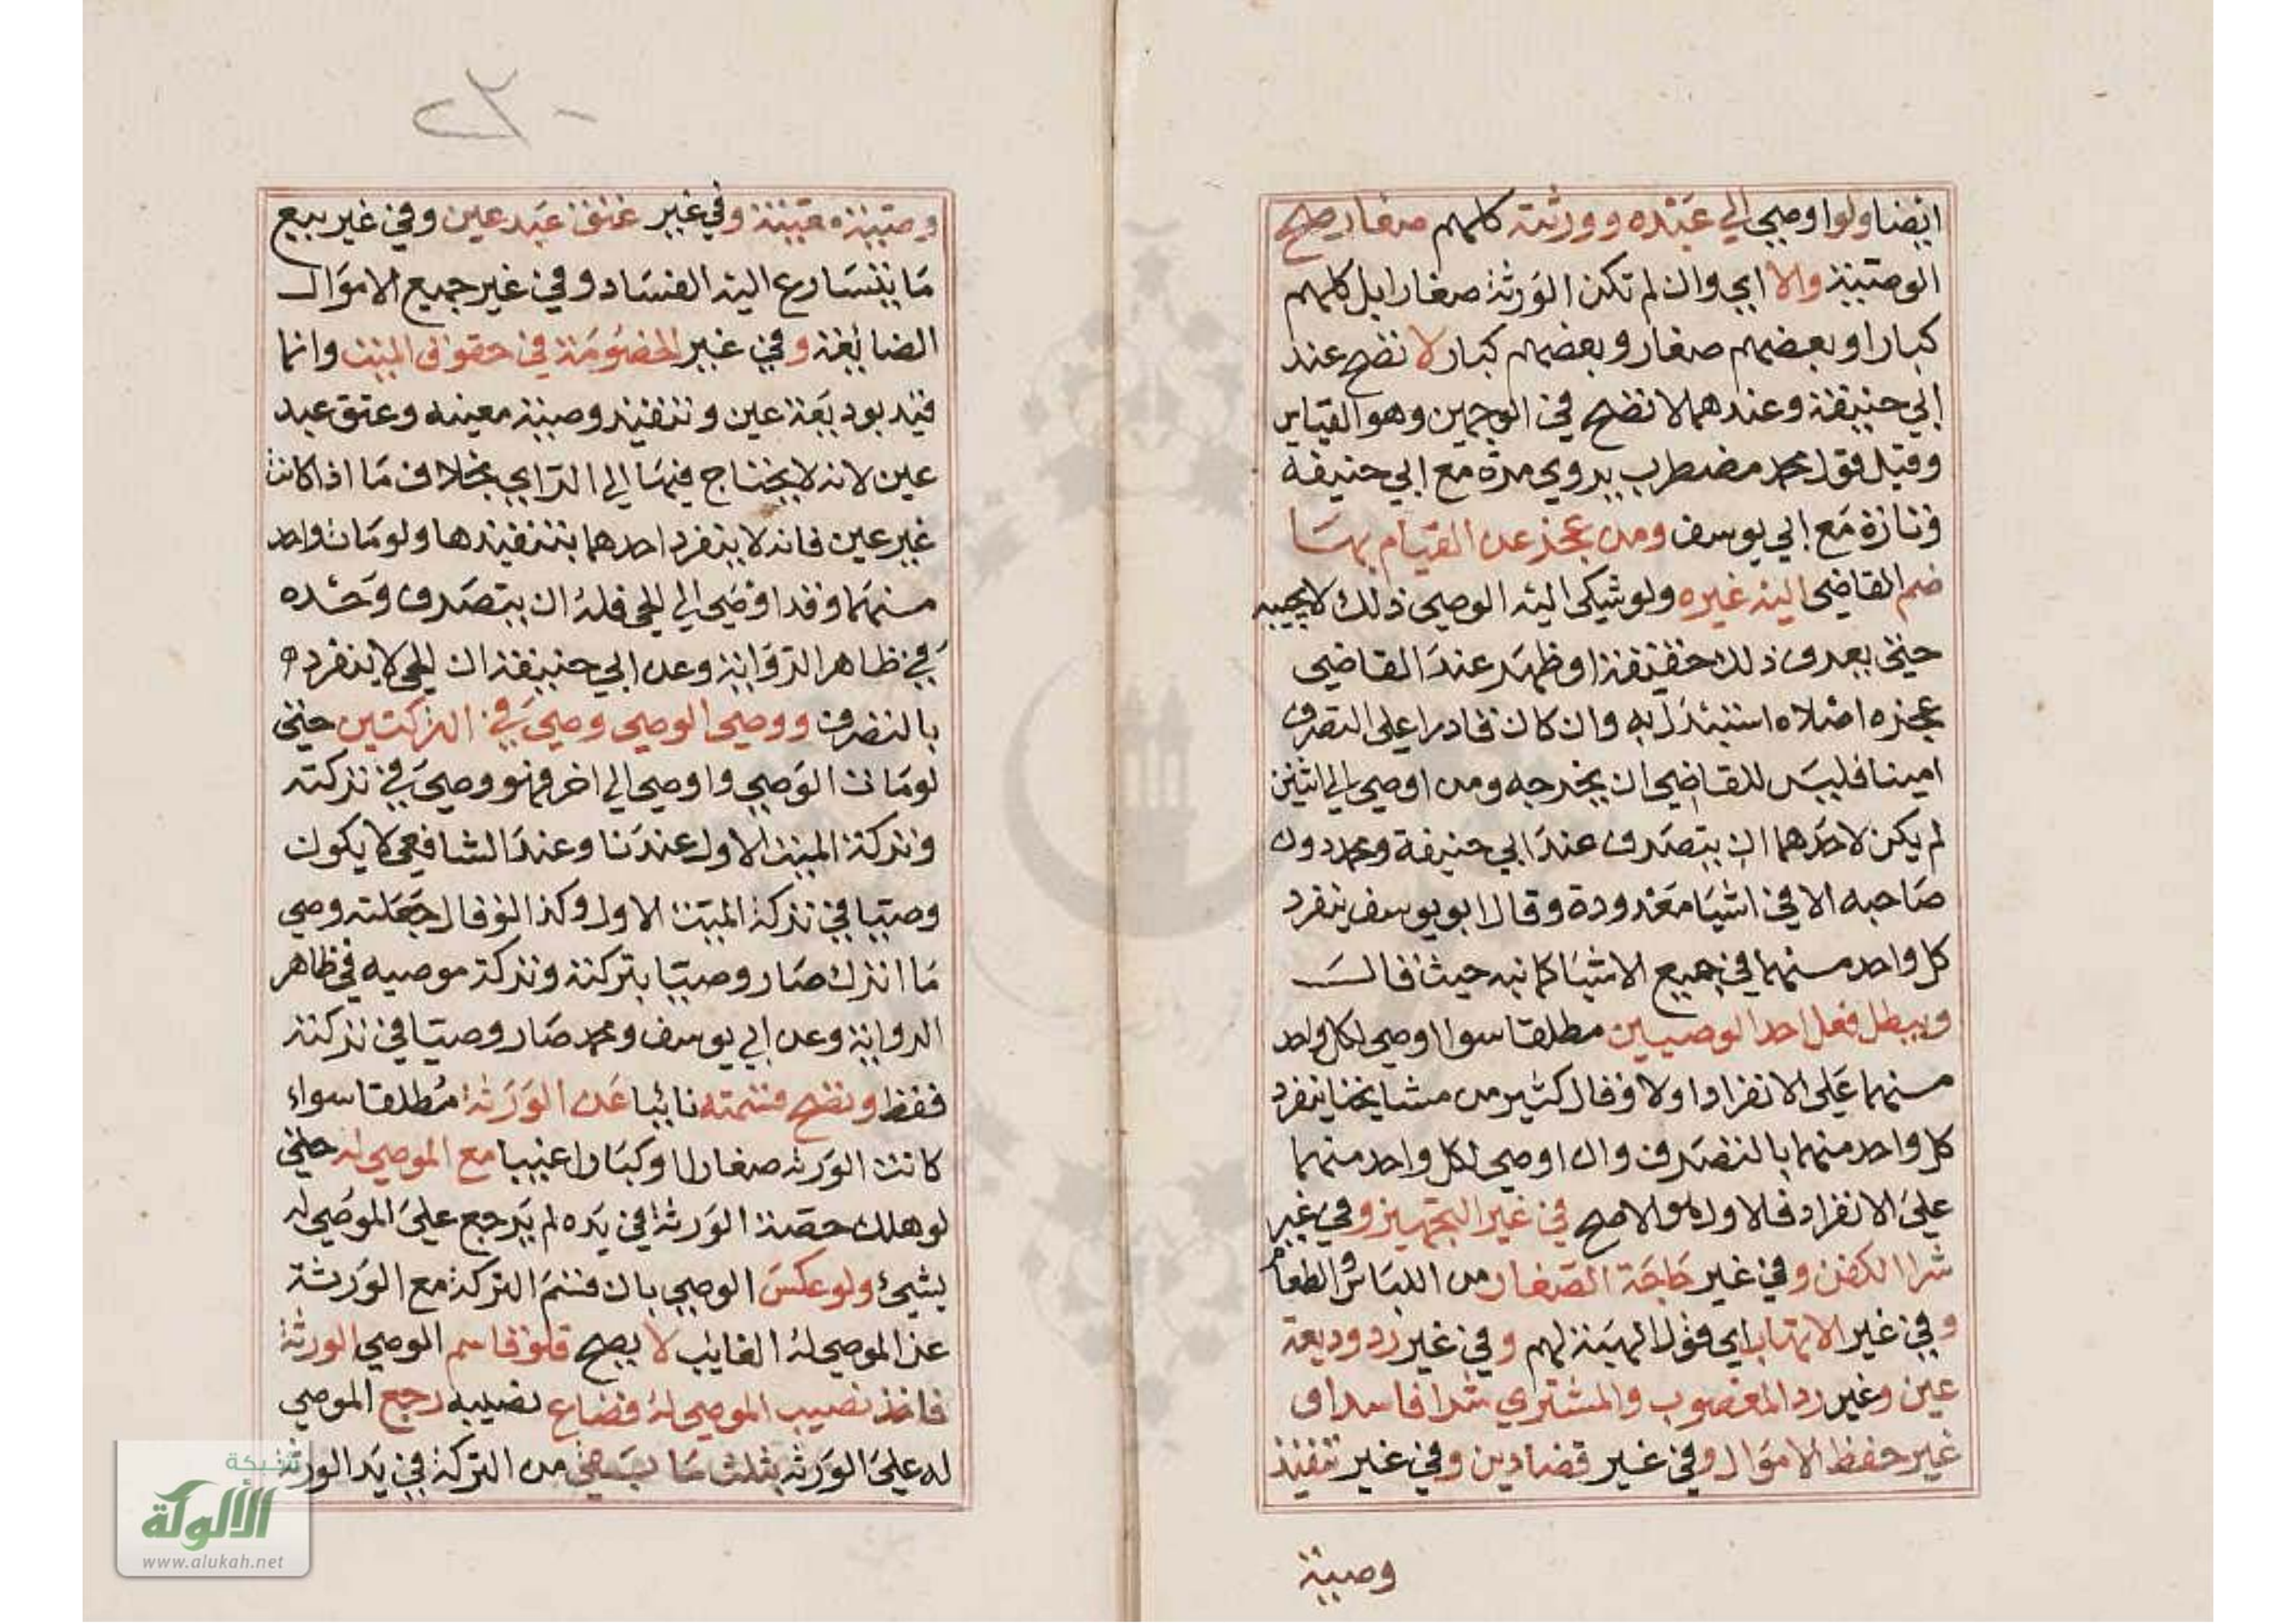 ايضا ولو اوصي الي عبده وورثته كلهم صغار صح
الوصية والا اي وان لم تكن الورثة صغارا بل كلهم
كبارا او بعضهم صغار وبعضهم كبار لا تصح عند
ابي حنيفة وعندهما لا تصح في الوجهين وهو القياس
وقيل قول محمد مضطرب يروي مرة مع ابي حنيفة
وتارة مع ابي يوسف ومن عجز عن القيام بها
ضم القاضي اليه غيره ولو شكي اليه الوصي ذلك لا يجيبه
حتي يعرف ذلك حقيقة او ظهر عند القاضي
عجزه اصلاه استبدل به وان كان قادرا علي التصرف
امينا فليس للقاضي ان يخرجه ومن اوصي الي اثنين
لم يكن لاحدهما ان يتصرف عند ابي حنيفة ومحمد دون
صاحبه الا في اشيا معدودة وقال ابو يوسف ينفرد
كل واحد منهما في جميع الاشيا كما نبه حيث قال
ويبطل فعل احد الوصيين مطلقا سوا اوصي لكل واحد
منهما علي الانفراد اولا وقال كثير من مشايخنا ينفرد
كل واحد منهما بالتصرف وان اوصي لكل واحد منهما
علي الانفراد فالاول هو الاصح في غير التجهيز وفي غير
شرا الكفن وفي غير حاجة الصغار من اللباس والطعام
وفي غير الاتهاب اي قول الهبة لهم وفي غير رد وديعة
عين وغير رد المغصوب والمشتري شرا فاسدا و
غير حفظ الاموال وفي غير قضا دين وفي غير تنفيذ
وصية
وصية معينة وفي غير عتق عبد عين وفي غير بيع
ما يتسارع اليه الفساد وفي غير جميع الاموال
الضائعة وفي غير الخصومة في حقوق الميت وانما
قيد بوديعة عين وتنفيذ وصية معينه وعتق عبد
عين لانه لا يحتاج فيها الي الراي بخلاف ما اذا كانت
غير عين فانه لا ينفرد احدهما بتنفيذها ولو مات واحد
منهما وقد اوصي الي الحي فله ان يتصرف وحده
في ظاهر الرواية وعن ابي حنيفة ان الحي لا ينفرد
بالتصرف ووصي الوصي وصي في التركتين حتي
لو مات الوصي واوصي الي اخر فهو وصي في تركته
وتركة الميت الاول عندنا وعند الشافعي لا يكون
وصيا في تركة الميت الاول وكذا لو قال جعلته وصي
ما اترك صار وصيا بتركته وتركة موصيه في ظاهر
الرواية وعن ابي يوسف ومحمد صار وصيا في تركته
فقط وتصح قسمته نائبا عن الورثة مطلقا سواء
كانت الورثه صغارا او كبارا غيبا مع الموصي له حتي
لو هلك حصة الورثة في يده لم يرجع علي الموصي له
بشيئ ولو عكس الوصي بان قسم التركة مع الورثة
عن الموصي له الغايب لا يصح فلو قاسم الموصي الورثة
فاخذ نصيب الموصي له فضاع نصيبه رجع الموصي
له علي الورثه بثلث ما بقي من التركة في يد الورثة
شبكة
الألوكة
www.alukah.net